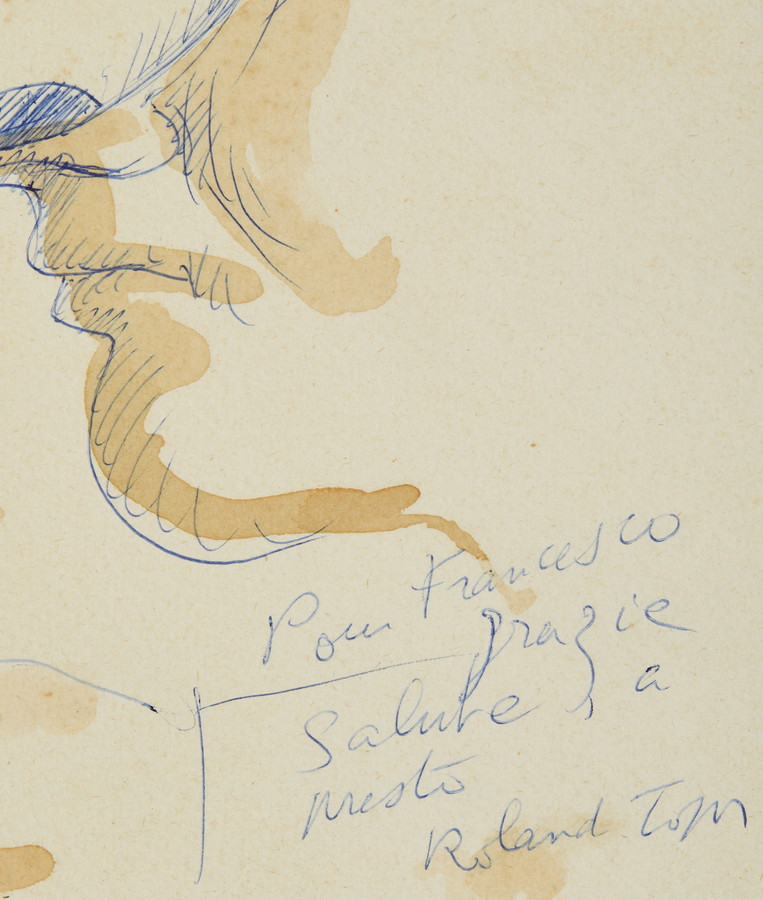 Pour Francesco
grazie
Salute, a
presto
Roland Topor